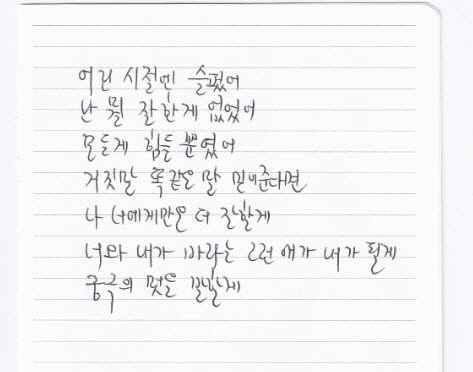 어린 시절엔 슬펐어
난 뭘 잘 한게 없었어
모든게 힘들 뿐였어
거짓말 똑같은 말 믿어준다면
나 너에게만은 더 잘할게
너와 내가 바라는 그런 애가 내가 될게
궁극의 멋은